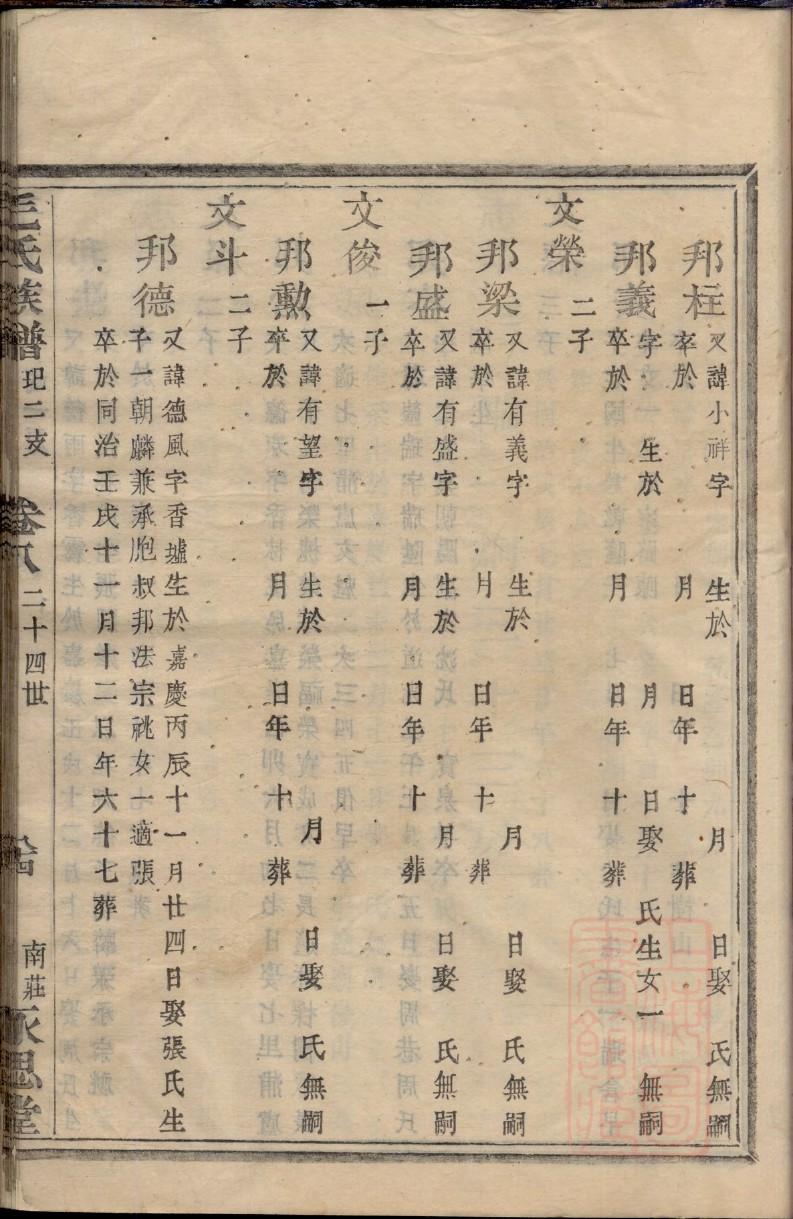 邦柱
又諱小祥字 生於 月 日娶 氏無嗣
卒於 月 日年 十 葬
邦義
字 生於 月 日娶 氏生女一 無嗣
卒於 月 日年 十 葬
文榮 二子
邦梁
又諱有義字 生於 月 日娶 氏無嗣
卒於 月 日年 十 葬
邦盛
又諱有盛字 生於 月 日娶 氏無嗣
卒於 月 日年 十 葬
文俊 一子
邦勳
又諱有望字 生於 月 日娶 氏無嗣
卒於 月 日年 十 葬
文斗 二子
邦德
又諱德風字香墟生於嘉慶丙辰十一月廿四日娶張氏生
子一朝麟兼承胞叔邦法宗祧女一適張
卒於同治壬戌十一月十二日年六十七葬
氏族譜 玘二支 卷八 二十四世 南莊 永思堂